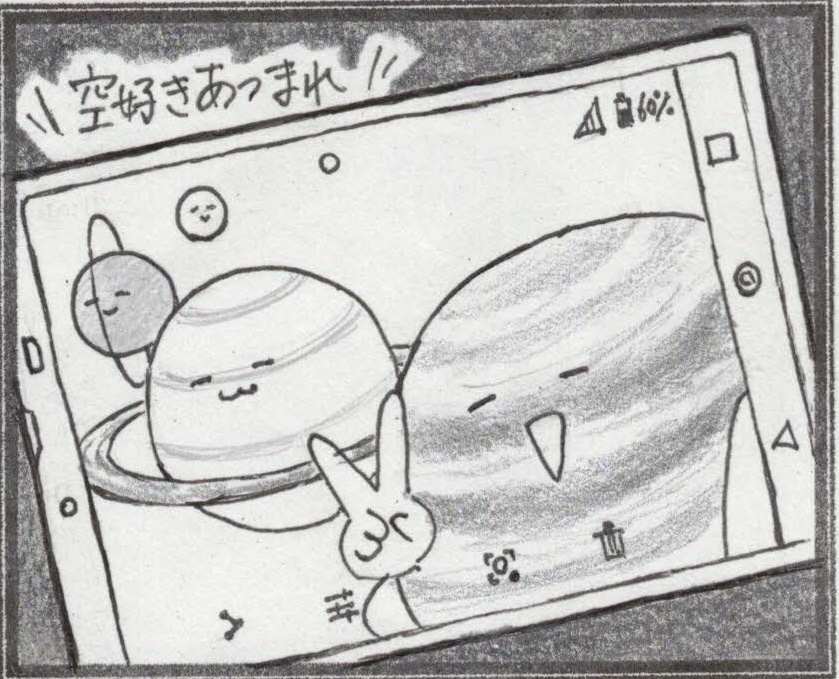 \\ 空好きあつまれ //
60%